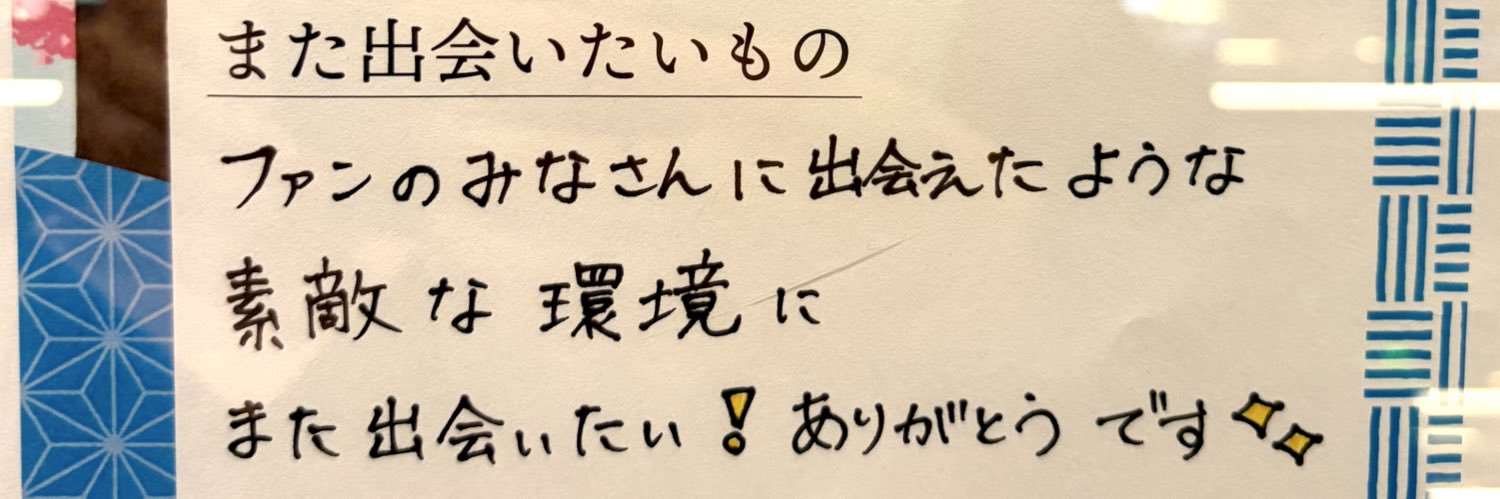 また出会いたいもの
ファンのみなさんに出会えたような
素敵な環境に
また出会いたい！ありがとうです✨